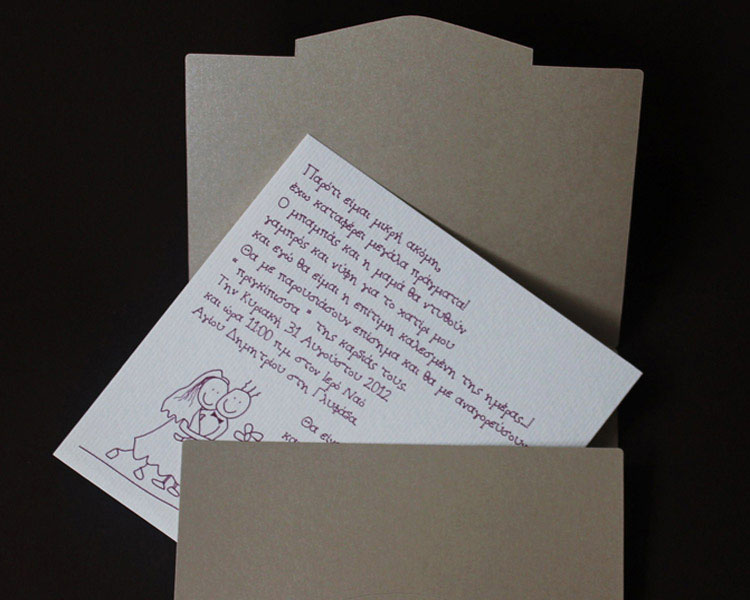 Παρότι είμαι μικρή ακόμη,
έχω καταφέρει μεγάλα πράγματα!
Ο μπαμπάς και η μαμά θα ντυθούν
γαμπρός και νύφη για το χατίρι μου
και εγώ θα είμαι η επίτιμη καλεσμένη της ημέρας...!
Θα με παρουσιάσουν επίσημα και θα με αναγορεύσουν
" πριγκίπισσα " της καρδιάς τους.
Την Κυριακή 31 Αυγούστου 2012
και ώρα 11:00 πμ στον Ιερό Ναό
Αγίου Δημητρίου στη Γλυφάδα
Θα